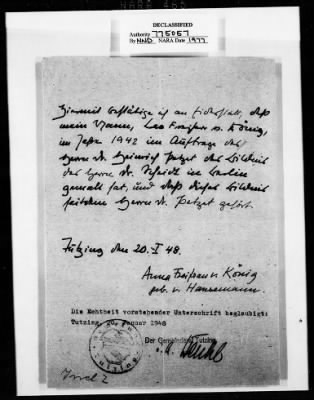 DECLASSIFIED
Authority 775057
By NND NARA Date 1977
Hiermit bestätige ich an Eidesstatt, daß
mein Mann, Leo Freiherr v. König,
im Jahr 1942 im Auftrage des
Herrn Dr. Heinrich Petzet das Bildnis
des Herrn Dr. in Berlin
gemalt hat, und daß dieses Bildnis
seitdem Herrn Dr. Petzet gehört.
Tutzing den 20. I 48.
Anna Freifrau v. König
geb. v. Hansemann.
Die Echtheit vorstehender Unterschrift beglaubigt:
Tutzing, 20. Januar 1948
Der Gemeinderat Tutzing